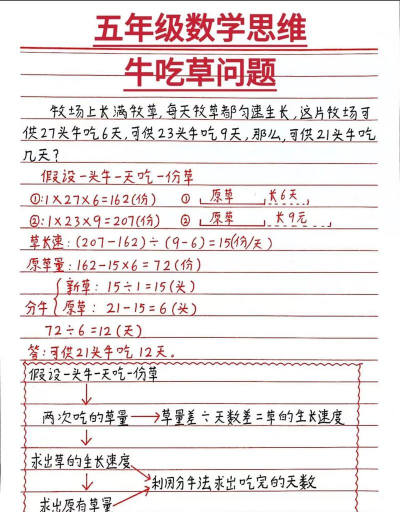 五年级数学思维
牛吃草问题
牧场上长满牧草,每天牧草都匀速生长,这片牧场可
供27头牛吃6天,可供23头牛吃9天,那么,可供21头牛吃
几天?
假设一头牛一天吃一份草
①:1×27×6=162(份) ① 原草 长6天
②:1×23×9=207(份) ② 原草 长9元
草长速:(207-162)÷(9-6)=15(份/天)
原草量:162-15×6=72(份)
新草: 15÷1=15(头)
分牛 原草: 21-15=6(头)
72÷6=12(天)
答:可供21头牛吃12天。
假设一头牛一天吃一份草
两次吃的草量→草量差÷天数差=草的生长速度
求出草的生长速度
利用分牛法求出吃完的天数
求出原有草量